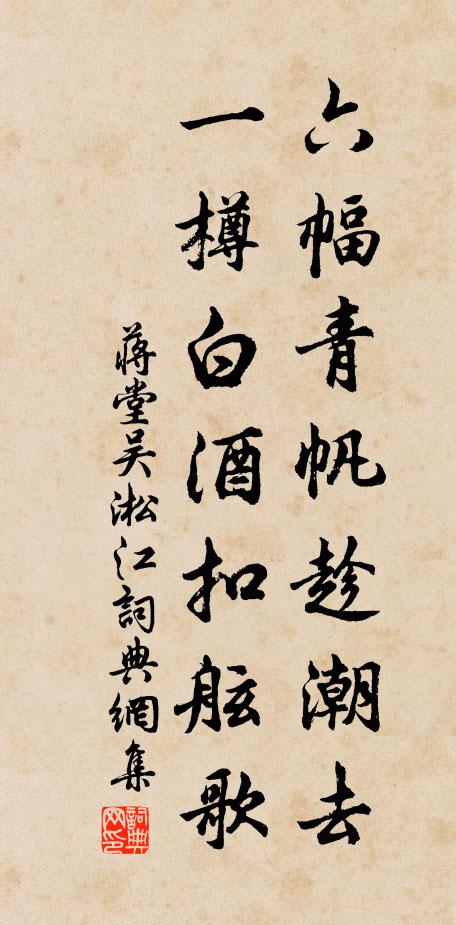 六幅青帆趁潮去
一樽白酒扣舷歌
蔣堂吴淞江詞典網集
詞典网印